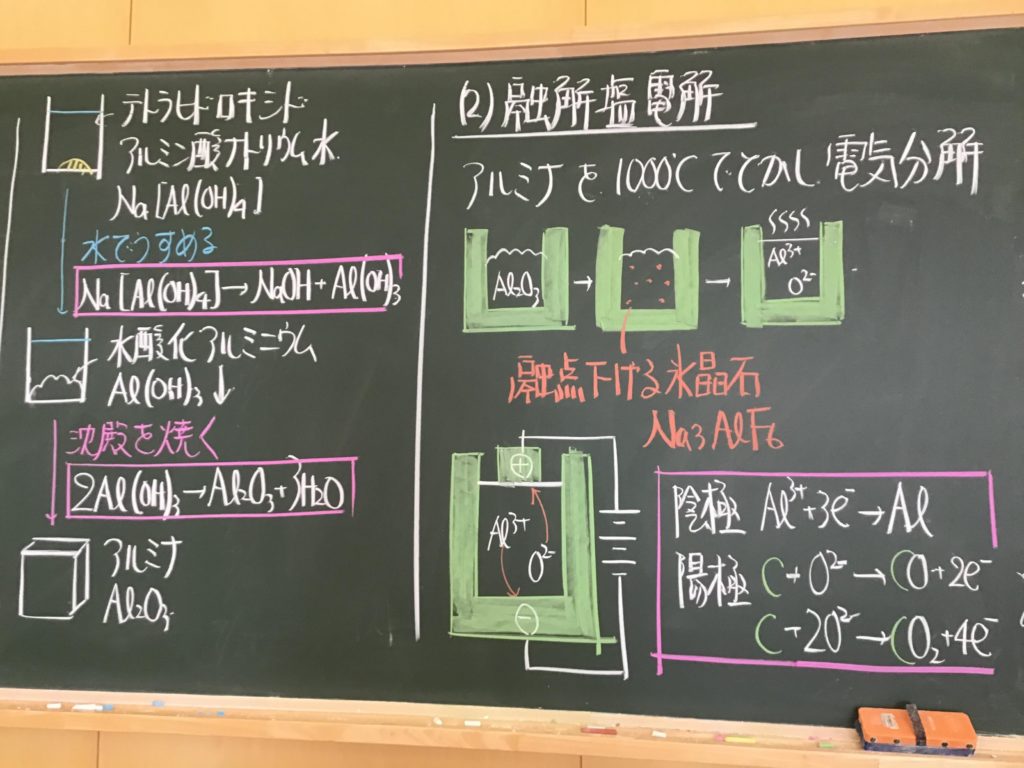 テトラヒドロキシド
アルミン酸ナトリウム水
Na[Al(OH)₄]
水でうすめる
Na[Al(OH)₄]→NaOH+Al(OH)₃
水酸化アルミニウム
Al(OH)₃↓
沈殿を焼く
2Al(OH)₃→Al₂O₃+3H₂O
アルミナ
Al₂O₃
(2)融解塩電解
アルミナを1000℃でとかし電気分解
Al₂O₃ → → Al³⁺
O²⁻
融点下げる氷晶石
Na₃AlF₆
⊕
Al³⁺
O²⁻
⊖
陰極 Al³⁺+3e⁻→Al
陽極 C+O²⁻→CO+2e⁻
C+2O²⁻→CO₂+4e⁻